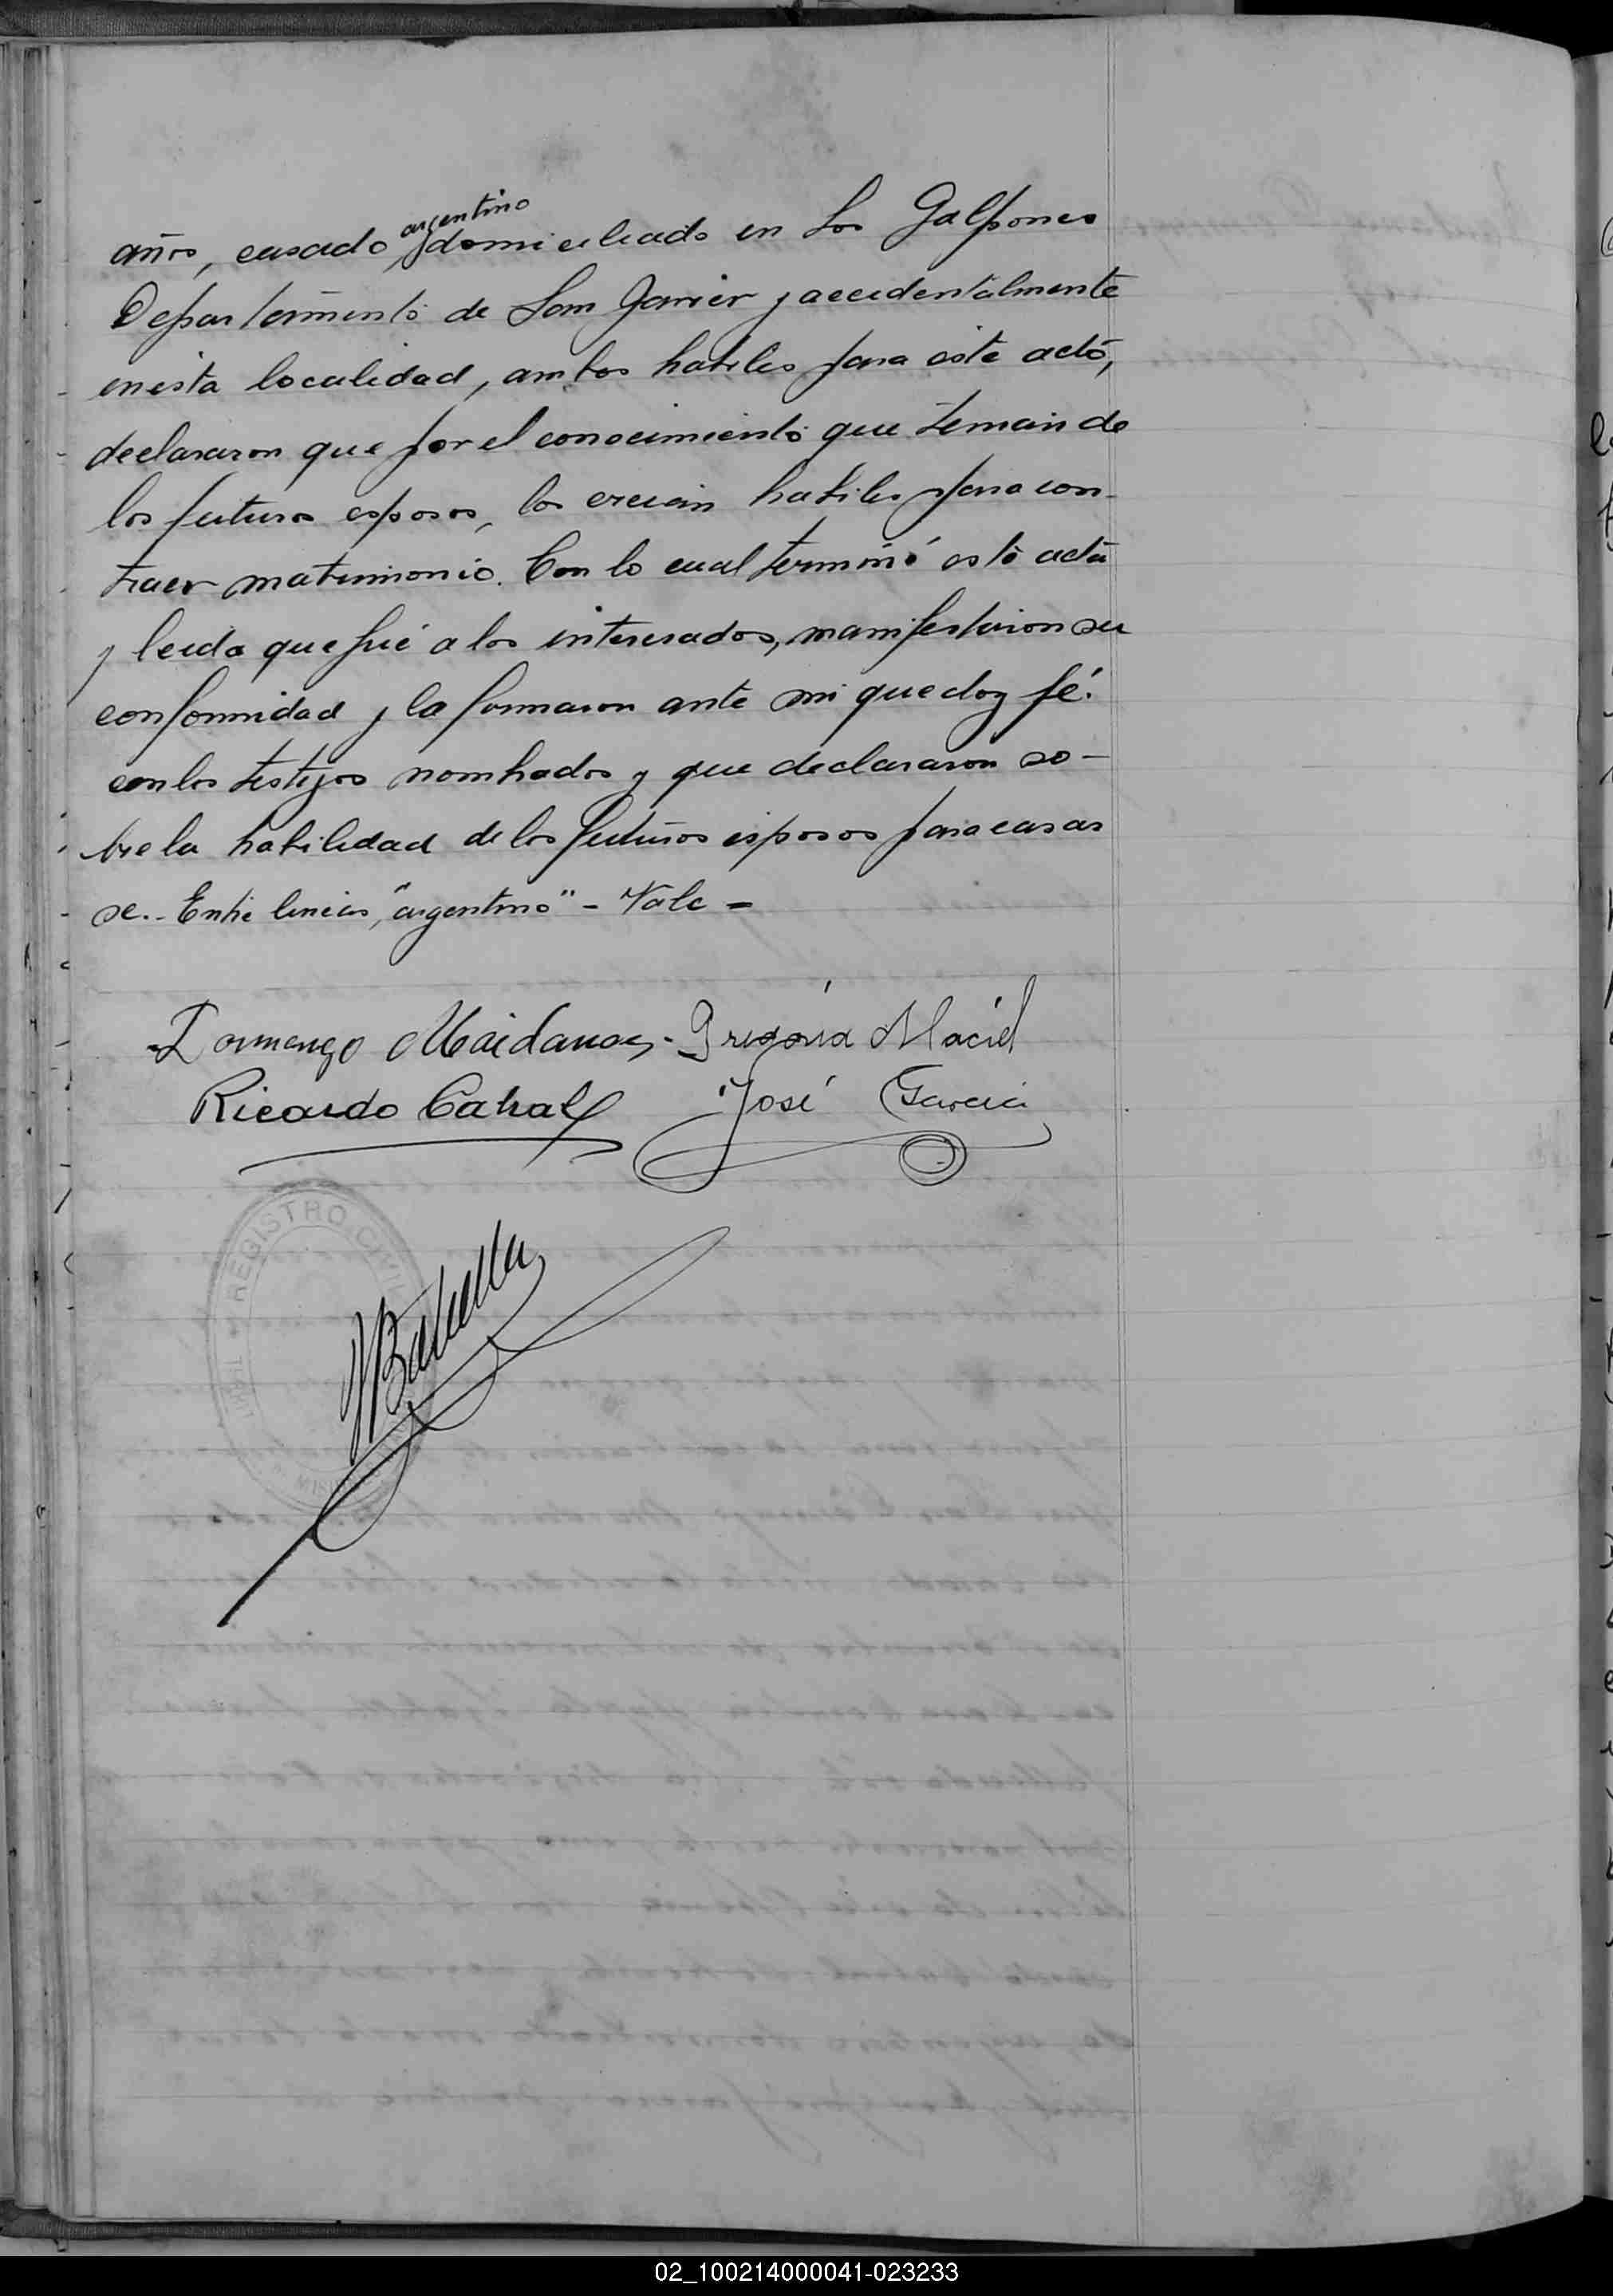 argentino
años, casado, y domiciliado en Los Galpones
Departamento de San Javier y accidentalmente
en esta localidad, ambos habiles para este acto,
declararon que por el conocimiento que tenian de
los futuros esposos, los creian habiles para con-
traer matrimonio. Con lo cual terminó esta acta
y leida que fué a los interesados, manifestaron su
conformidad y la firmaron ante mi que doy fé.
con los testigos nombrados y que declararon so-
bre la habilidad de los futuros esposos para casar
se.- Entre lineas, "argentino" - Vale -
Dormengo Maidana - Gregoria Maciel
Ricardo Cabral José Garcia
REGISTRO CIVIL
02_100214000041-023233